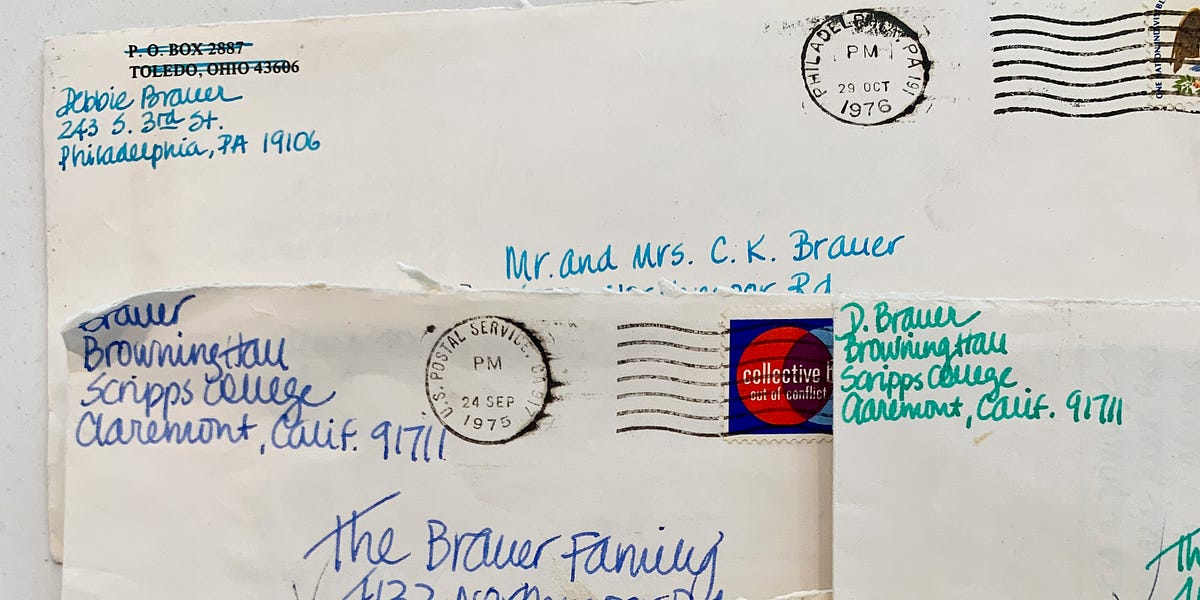 P. O. BOX 2887
TOLEDO, OHIO 43606
Debbie Brauer
243 S. 3rd St.
Philadelphia, PA 19106
PHILADELPHIA, PA 191
PM
29 OCT
1976
ONE NATION INDIVISIBLE
Mr. and Mrs. C. K. Brauer
Rd
Brauer
Browning Hall
Scripps College
Claremont, Calif. 91711
U.S. POSTAL SERVICE, CA 917
PM
24 SEP
1975
collective b
out of conflict
The Brauer Family
D. Brauer
Browning Hall
Scripps College
Claremont, Calif. 91711
Th